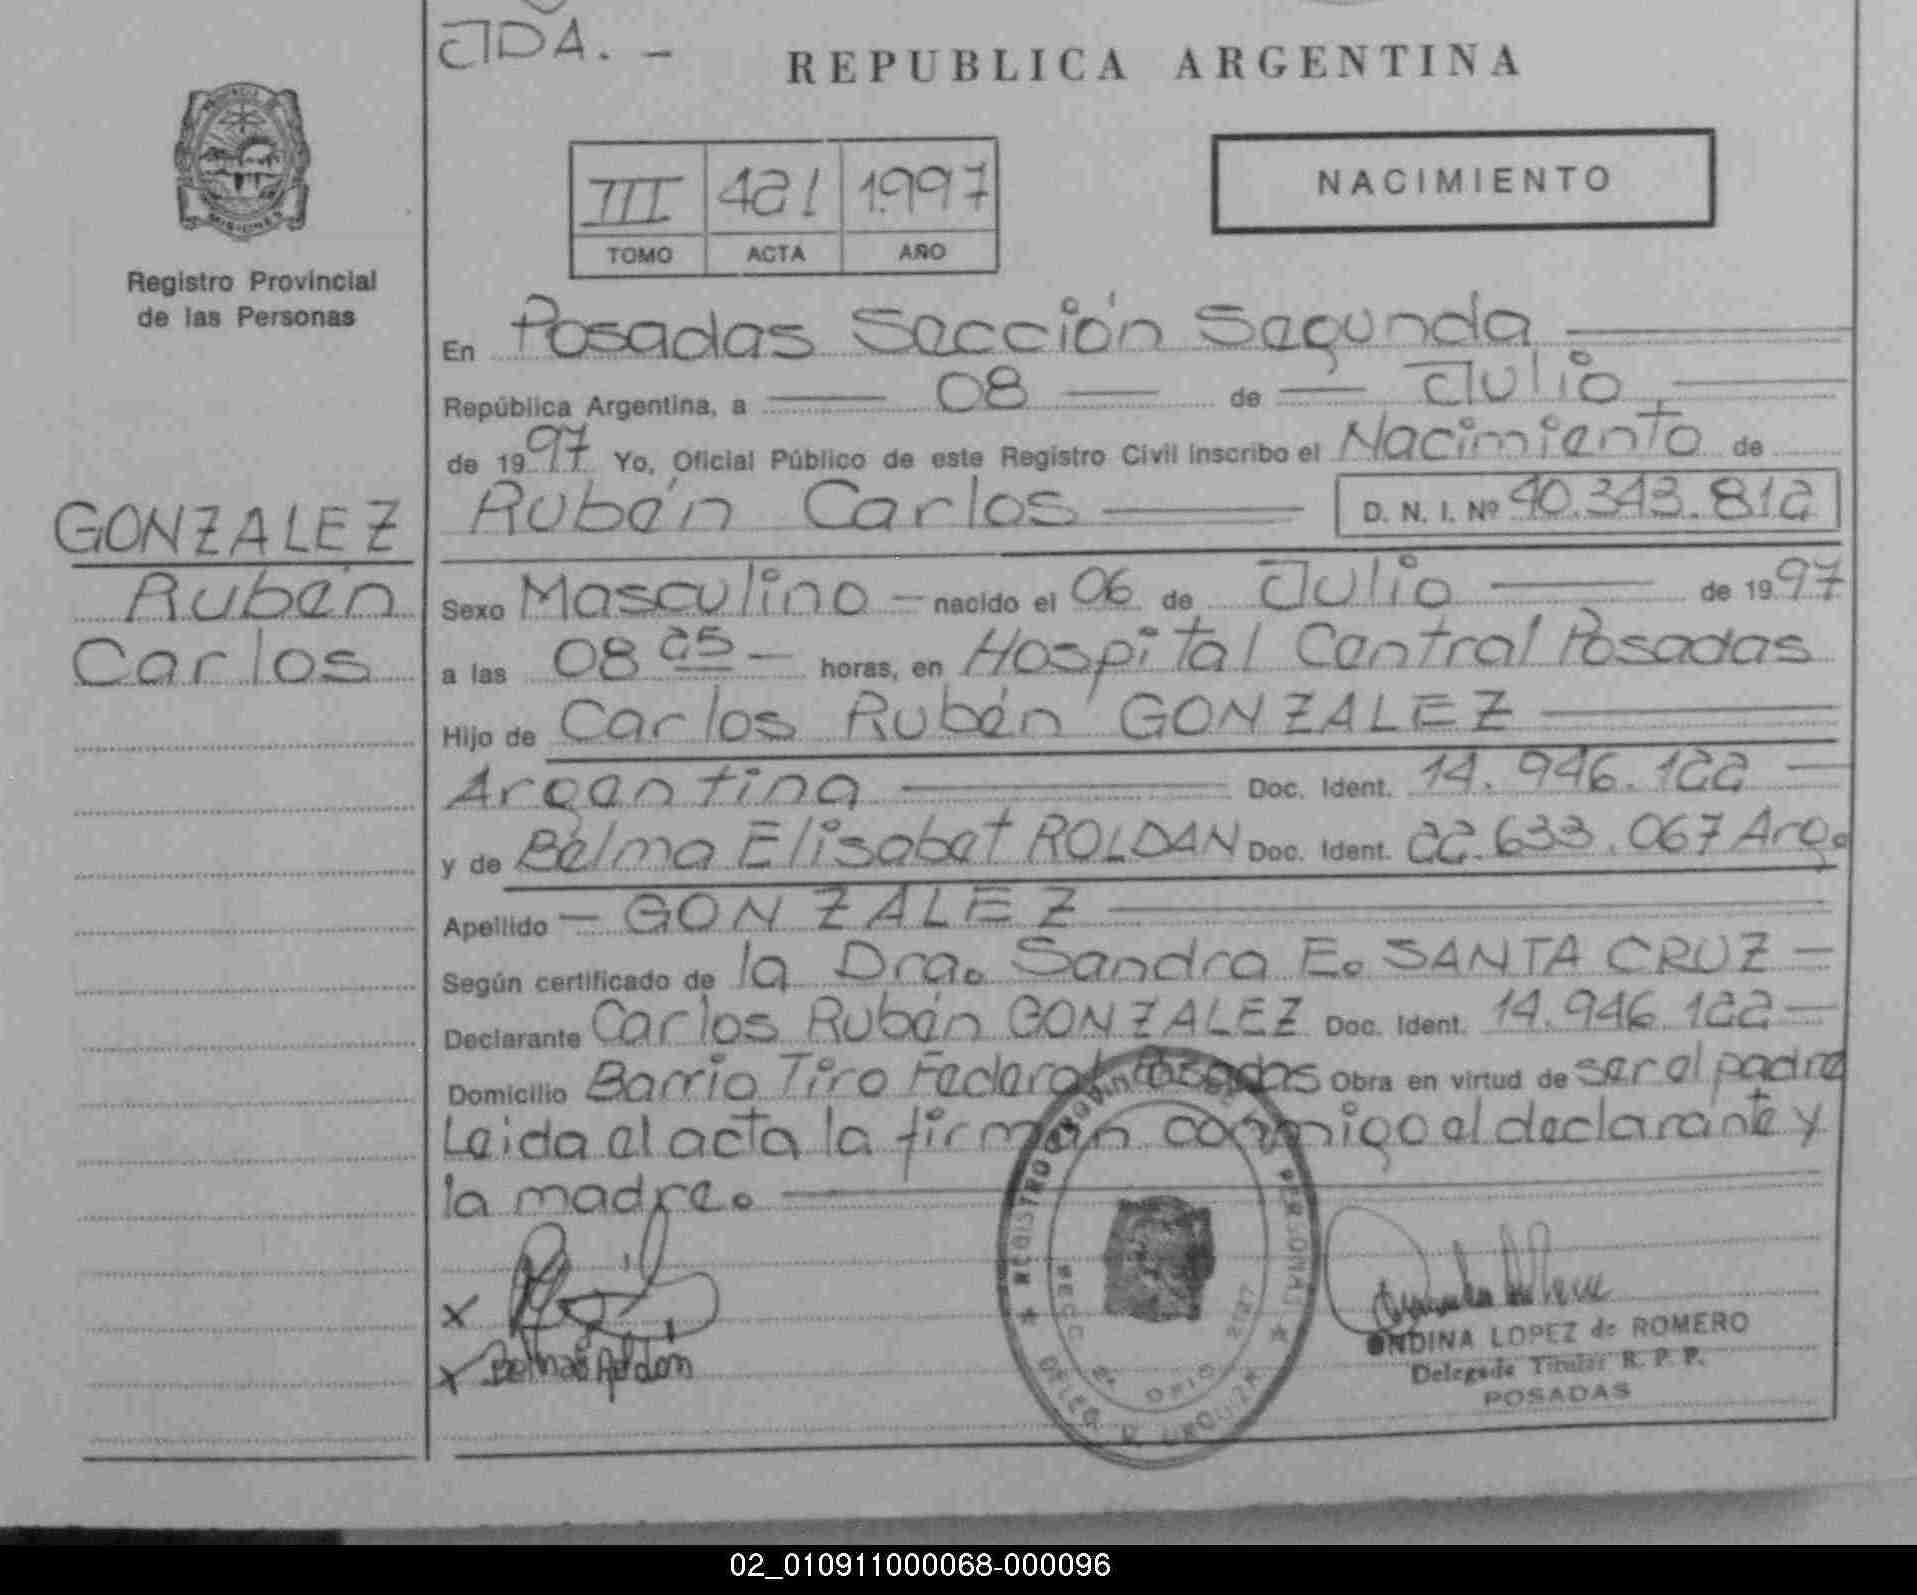 JDA. -
REPUBLICA ARGENTINA
III 421 1.997
TOMO ACTA AÑO
NACIMIENTO
MISIONES
Registro Provincial
de las Personas
GONZALEZ
Rubén
Carlos
En Posadas Sección Segunda
República Argentina, a 08 de Julio
de 1997 Yo, Oficial Público de este Registro Civil inscribo el Nacimiento de
Rubén Carlos D. N. I. Nº 40.343.812
Sexo Masculino - nacido el 06 de Julio de 1997
a las 08 25 - horas, en Hospital Central Posadas
Hijo de Carlos Rubén GONZALEZ
Argentina Doc. Ident. 14.946.122 -
y de Belma Elisabet ROLDAN Doc. Ident. 22.633.067 Arg.
Apellido - GONZALEZ
Según certificado de la Dra. Sandra E. SANTA CRUZ -
Declarante Carlos Rubén GONZALEZ Doc. Ident. 14.946.122 -
Domicilio Barrio Tiro Federal Posadas Obra en virtud de ser el padre
Leida el acta la firman conmigo el declarante y
la madre.
x
x Belma Roldan
REGISTRO PROVINCIAL DE LAS PERSONAS
ONDINA LOPEZ de ROMERO
Delegada Titular R. P. P.
POSADAS
02_010911000068-000096